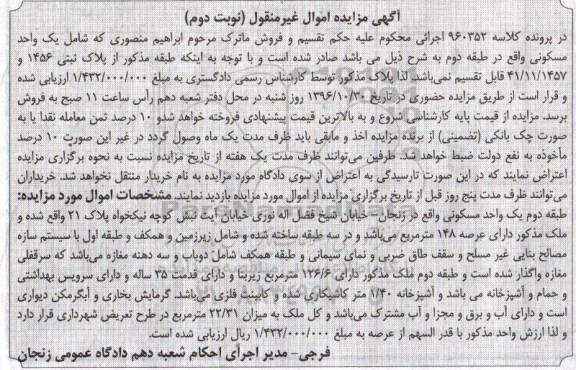 آگهی مزایده اموال غیرمنقول (نوبت دوم)
در پرونده کلاسه ۹۶۰۳۵۲ اجرائی محکوم علیه حکم تقسیم و فروش ماترک مرحوم ابراهیم منصوری که شامل یک واحد
مسکونی واقع در طبقه دوم به شرح ذیل می باشد صادر شده است و با توجه به اینکه طبقه مذکور از پلاک ثبتی ۱۴۵۶ و
۴۱/۱۱/۱۴۵۷ قابل تقسیم نمی‌باشد. لذا پلاک مذکور توسط کارشناس رسمی دادگستری به مبلغ ۱/۴۳۲/۰۰۰/۰۰۰ ارزیابی شده
و قرار است از طریق مزایده حضوری در تاریخ ۱۳۹۶/۱۰/۳۰ روز شنبه در محل دفتر شعبه دهم رأس ساعت ۱۱ صبح به فروش
برسد. مزایده از قیمت پایه کارشناسی شروع و به بالاترین قیمت پیشنهادی فروخته خواهد شدو ۱۰ درصد ثمن معامله نقدا یا به
صورت چک بانکی (تضمینی) از برنده مزایده اخذ و مابقی باید ظرف مدت یک ماه وصول گردد در غیر این صورت ۱۰ درصد
مأخوذه به نفع دولت ضبط خواهد شد. طرفین می‌توانند ظرف مدت یک هفته از تاریخ مزایده نسبت به نحوه برگزاری مزایده
اعتراض نمایند که در این صورت تارسیدگی به اعتراض از سوی دادگاه مورد مزایده به نام خریدار منتقل نخواهد شد. خریداران
می‌توانند ظرف مدت پنج روز قبل از تاریخ برگزاری مزایده از اموال مورد مزایده بازدید نمایند. مشخصات اموال مورد مزایده:
طبقه دوم یک واحد مسکونی واقع در زنجان- خیابان شیخ فضل اله نوری خیابان آیت نبش کوچه نیکخواه پلاک ۲۱ واقع شده و
ملک مذکور دارای عرصه ۱۴۸ مترمربع می‌باشد و در سه طبقه ساخته شده و شامل زیرزمین و همکف و طبقه اول با سیستم سازه
مصالح بنایی غیر مسلح و سقف طاق ضربی و نمای سیمانی و طبقه همکف شامل دوباب و سه دهنه مغازه می‌باشد که سرقفلی
مغازه واگذار شده است و طبقه دوم ملک مذکور دارای ۱۲۶/۶ مترمربع زیربنا و دارای قدمت ۳۵ ساله و دارای سرویس بهداشتی
و حمام و آشپزخانه می باشد و آشپزخانه ۱/۴۰ متر کاشیکاری شده و کابینت فلزی می‌باشد. گرمایش بخاری و آبگرمکن دیواری
است و دارای آب و برق و مجزا و آب مشترک می‌باشد و کل ملک به میزان ۲۲/۳۱ مترمربع در طرح تعریض شهرداری قرار دارد
و لذا ارزش واحد مذکور با قدر السهم از عرصه به مبلغ ۱/۴۳۲/۰۰۰/۰۰۰ ریال ارزیابی شده است.
فرجی- مدیر اجرای احکام شعبه دهم دادگاه عمومی زنجان